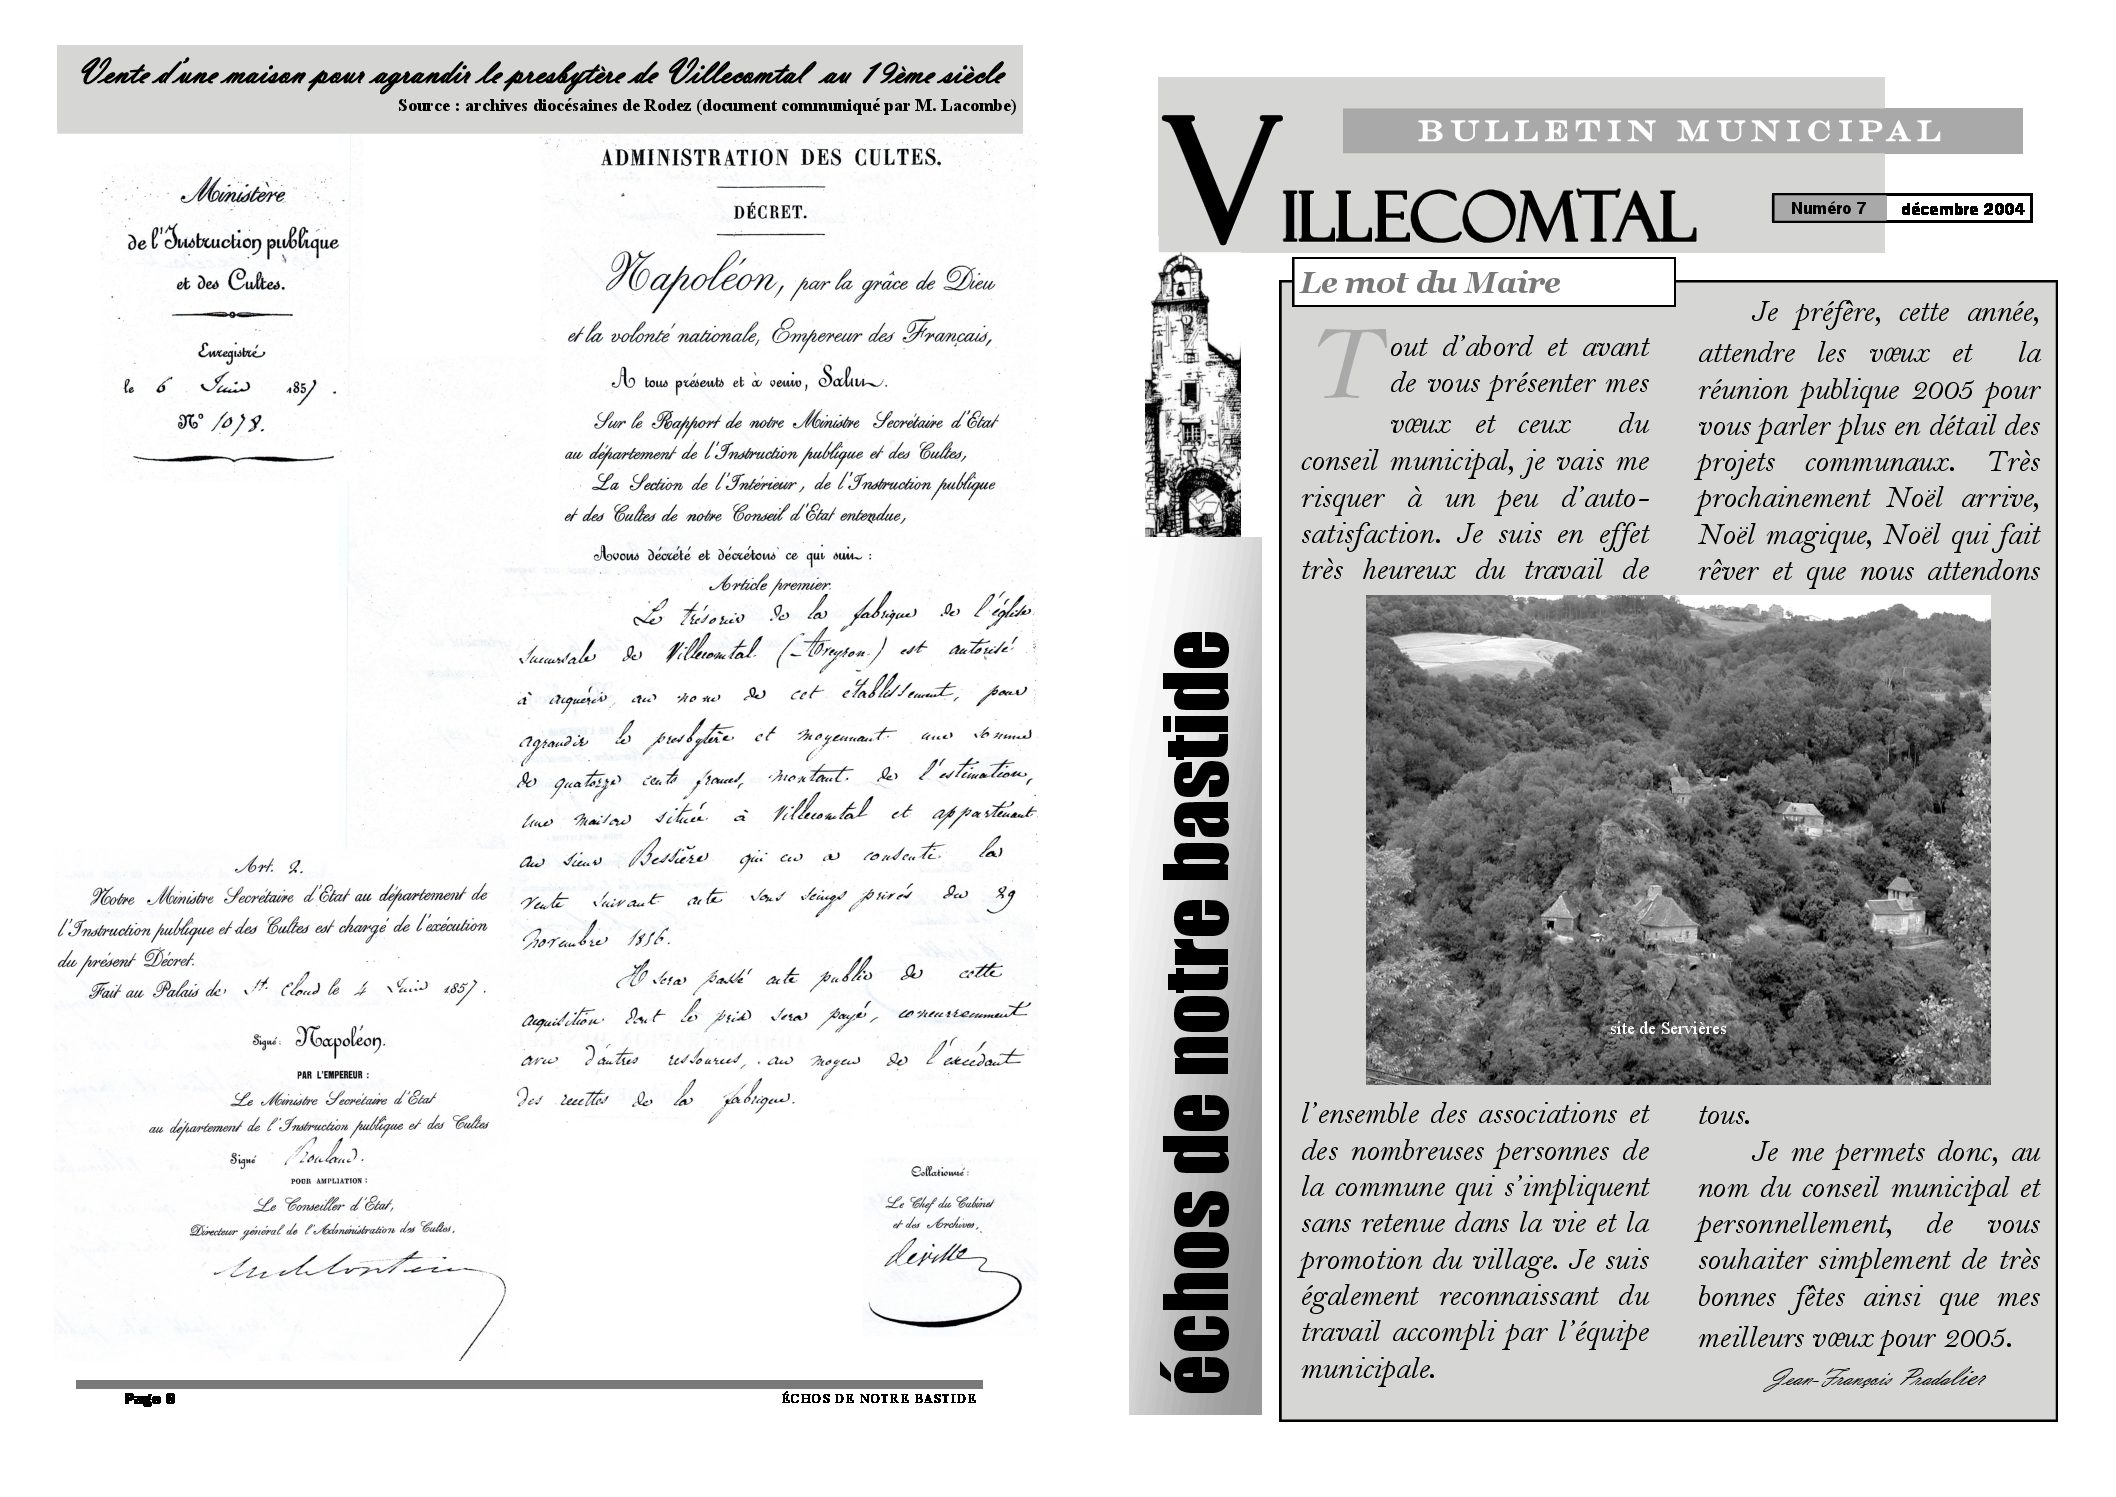 Vente d'une maison pour agrandir le presbytère de Villecomtal au 19ème siècle
Source : archives diocésaines de Rodez (document communiqué par M. Lacombe)
Ministère
de l'Instruction publique
et des Cultes.
Enregistré
le 6 Juin 1857.
N° 1078.
ADMINISTRATION DES CULTES.
DÉCRET.
Napoléon, par la grâce de Dieu
et la volonté nationale, Empereur des Français,
A tous présents et à venir, Salut.
Sur le Rapport de notre Ministre Secrétaire d'Etat
au département de l'Instruction publique et des Cultes,
La Section de l'Intérieur, de l'Instruction publique
et des Cultes de notre Conseil d'Etat entendue,
Avons décrété et décrétons ce qui suit :
Article premier.
Le trésorier de la fabrique de l'église
succursale de Villecomtal (Aveyron) est autorisé
à acquérir, au nom de cet établissement, pour
agrandir le presbytère et moyennant une somme
de quatorze cents francs, montant de l'estimation,
une maison située à Villecomtal et appartenant
au sieur Bessière qui en a consenti la
vente suivant acte sous seings privés du 29
novembre 1856.
Il sera passé acte public de cette
acquisition dont le prix sera payé, concurremment
avec d'autres ressources, au moyen de l'excédant
des recettes de la fabrique.
Art. 2.
Notre Ministre Secrétaire d'Etat au département de
l'Instruction publique et des Cultes est chargé de l'exécution
du présent Décret.
Fait au Palais de St. Cloud le 4 Juin 1857.
Signé: Napoléon.
PAR L'EMPEREUR :
Le Ministre Secrétaire d'Etat
au département de l'Instruction publique et des Cultes
Signé Rouland.
POUR AMPLIATION :
Le Conseiller d'Etat,
Directeur général de l'Administration des Cultes,
Collationné:
Le Chef du Cabinet
et des Archives,
Page 8
ÉCHOS DE NOTRE BASTIDE
BULLETIN MUNICIPAL
VILLECOMTAL
Numéro 7 décembre 2004
échos de notre bastide
Le mot du Maire
Tout d'abord et avant
de vous présenter mes
vœux et ceux du
conseil municipal, je vais me
risquer à un peu d'auto-
satisfaction. Je suis en effet
très heureux du travail de
l'ensemble des associations et
des nombreuses personnes de
la commune qui s'impliquent
sans retenue dans la vie et la
promotion du village. Je suis
également reconnaissant du
travail accompli par l'équipe
municipale.
Je préfère, cette année,
attendre les vœux et la
réunion publique 2005 pour
vous parler plus en détail des
projets communaux. Très
prochainement Noël arrive,
Noël magique, Noël qui fait
rêver et que nous attendons
tous.
Je me permets donc, au
nom du conseil municipal et
personnellement, de vous
souhaiter simplement de très
bonnes fêtes ainsi que mes
meilleurs vœux pour 2005.
Jean-François Pradalier
site de Servières